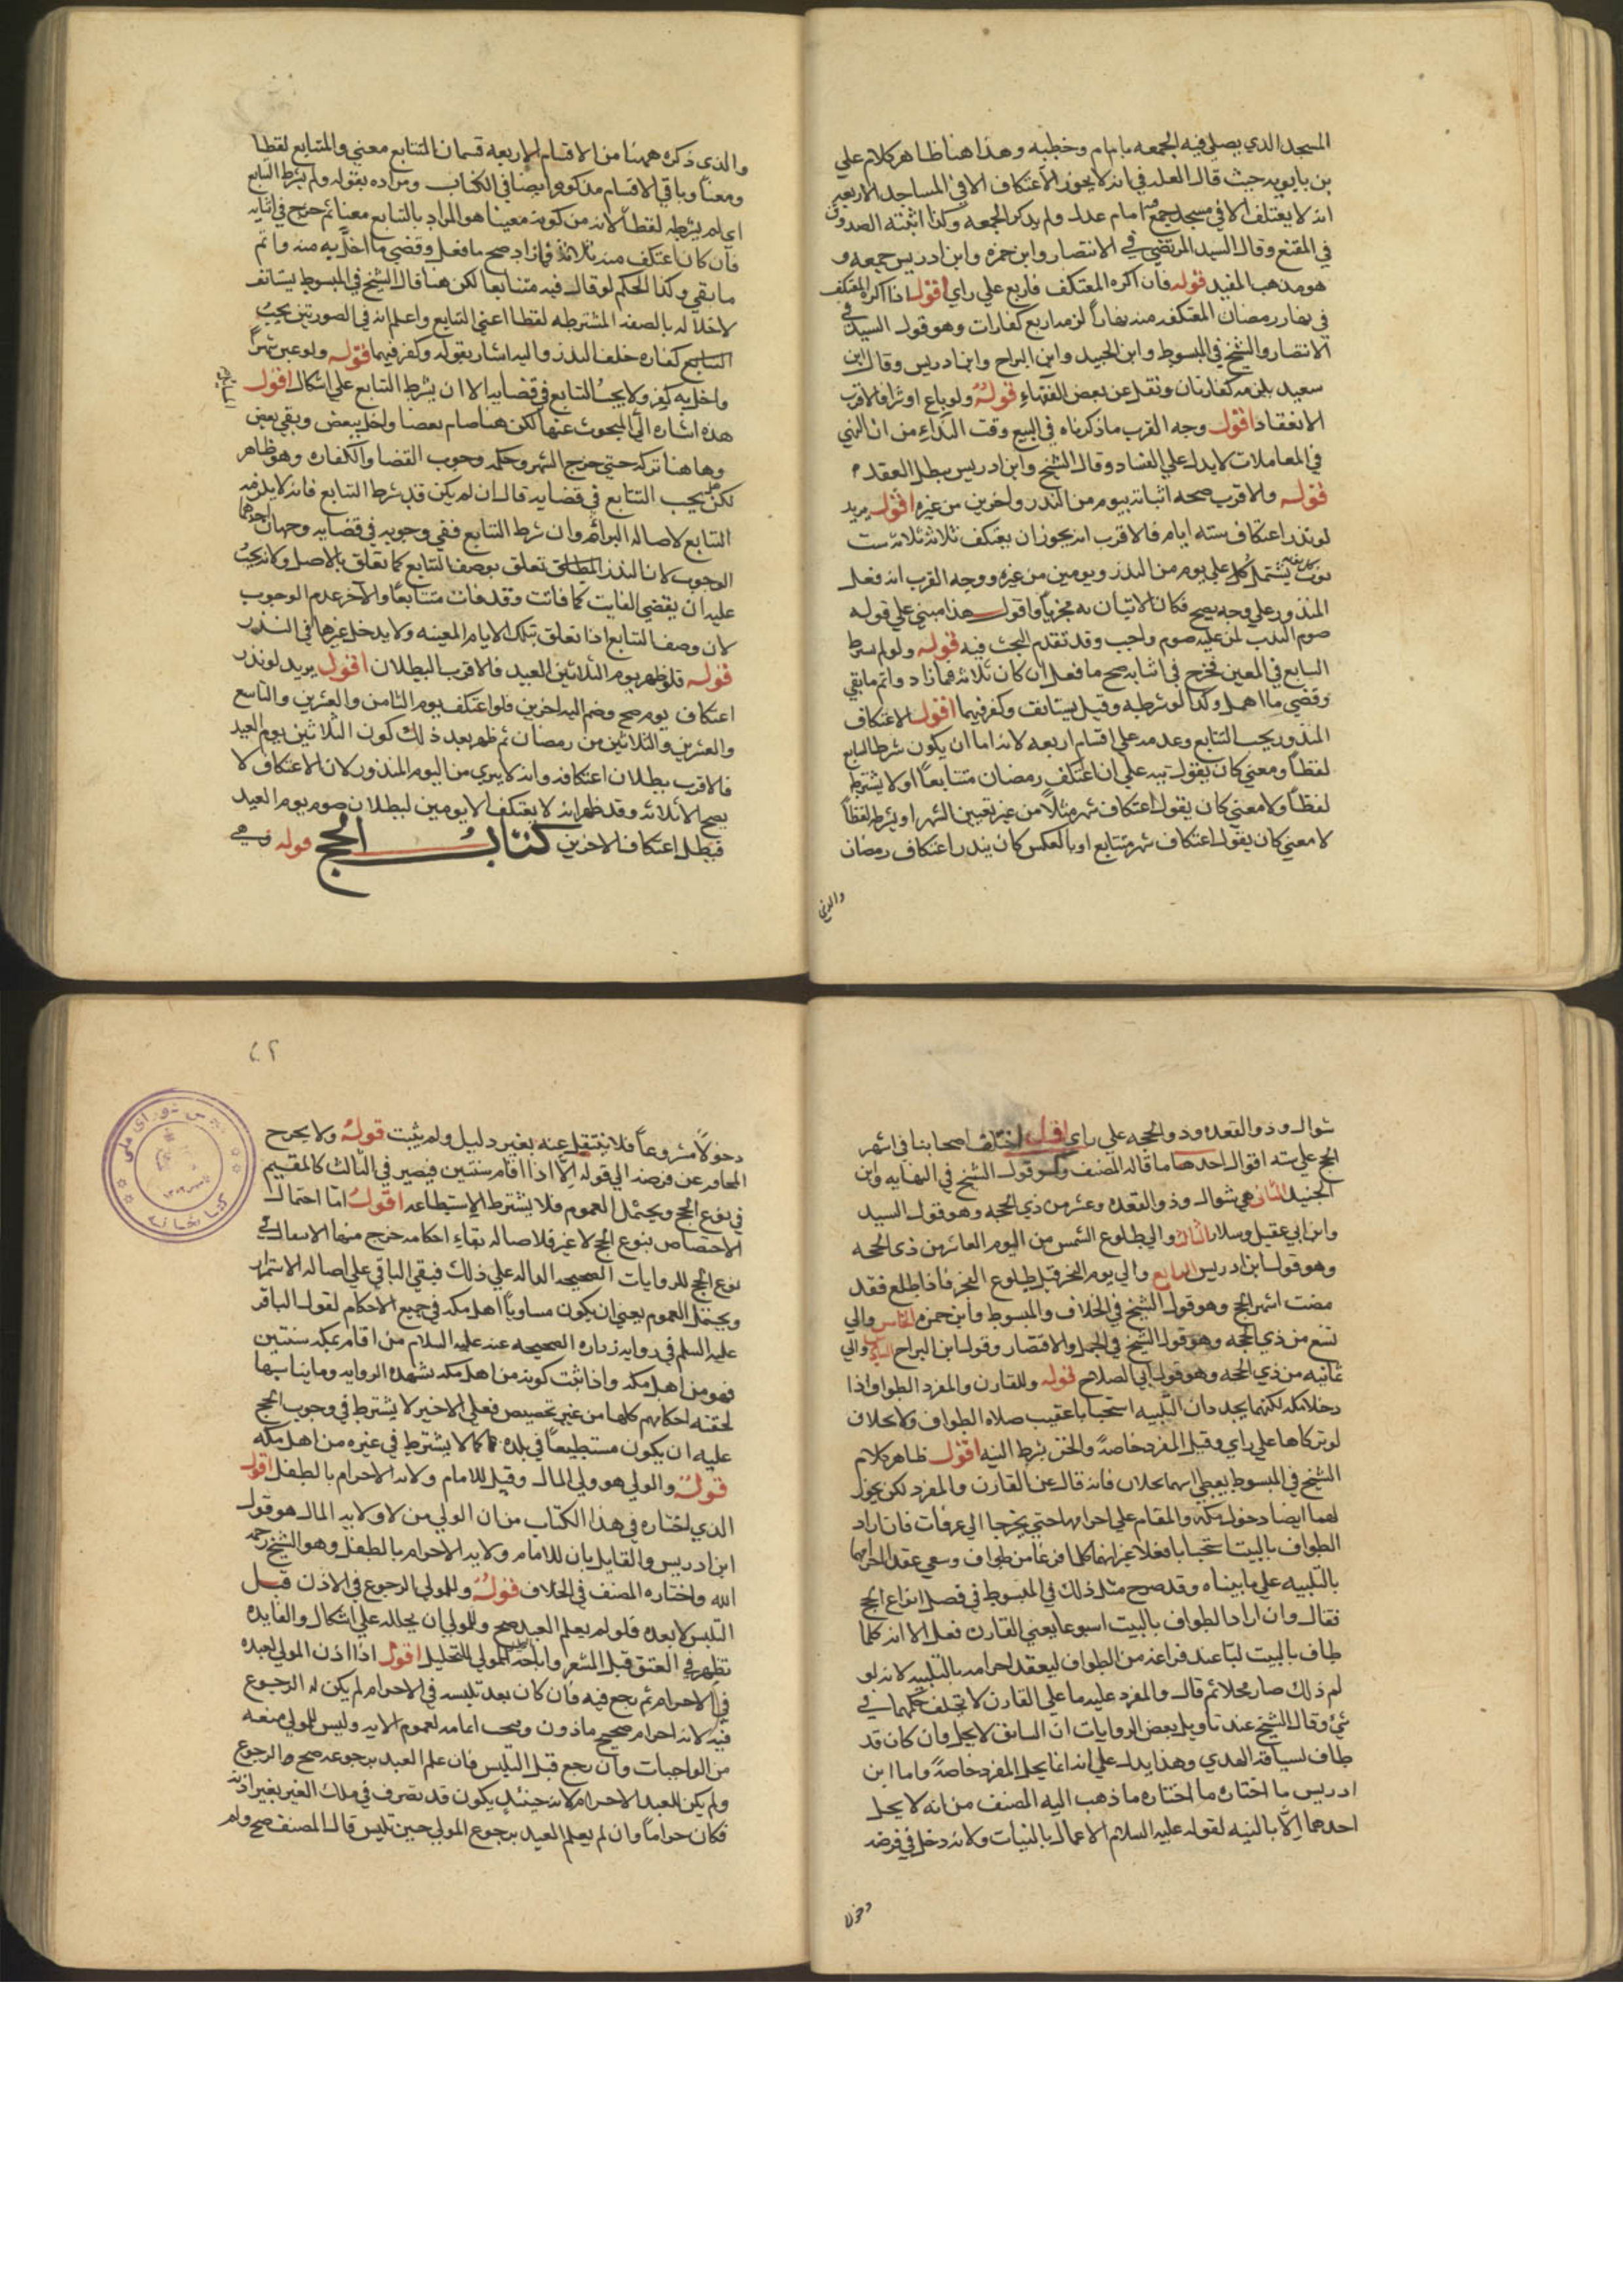 المسجد الذي يصلي فيه الجمعه بامام وخطبه وهذا هنا ظاهر كلام علي
بن بابويه حيث قال العله في انه لا يجوز الاعتكاف الا في المساجد الاربعه
انه لا يعتكف الا في مسجد جمع فيه امام عدل ولم يذكر الجمعه وكذا اثبته الصدوق
في المقنع وقال السيد المرتضي في الانتصار وابن حمزه وابن ادريس جمعه و
هو مذهب المفيد قوله فان اكره المعتكفه فاربع علي راي اقول اذا اكره المعتكف
في نهار رمضان المعتكفه منه نهاراً لزمه اربع كفارات وهو قول السيد في
الانتصار والشيخ في المبسوط وابن الجنيد وابن البراج وابن ادريس وقال ابن
سعيد يلزمه كفارتان ونقل عن بعض الفقهاء قوله ولو باع او شرا فالاقرب
الانعقاد اقول وجه القرب ما ذكرناه في البيع وقت النداء من ان النهي
في المعاملات لا يدل علي الفساد وقال الشيخ وابن ادريس يبطل العقد
قوله والاقرب صحه اتيانه بيوم من النذر واخرين من غيره اقول يريد
لو نذر اعتكاف سته ايام فالاقرب انه يجوز ان يعتكف ثلاثه ثلاثه ست
يشتمل كل علي يوم من النذر ويومين من غيره ووجه القرب انه فعل
المنذور علي وجه يصح فكان الاتيان به مجزياً واقول هذا مبني علي قوله
صوم الندب لمن عليه صوم واجب وقد تقدم البحث فيه قوله ولو لم يشترط
التتابع في المعين فخرج في اثنائه صح ما فعل ان كان ثلاثه فما زاد واتم ما بقي
وقضي ما اهمل وكذا لو شرطه وقيل يستانف وكفر فيهما اقول الاعتكاف
المنذور يجب التتابع وعدمه علي اقسام اربعه لانه اما ان يكون شرط التتابع
لفظاً ومعني كان يقول لله علي ان اعتكف رمضان متتابعاً او لا يشترط
لفظاً ولا معني كان يقول اعتكاف شهر مثلاً من غير تعيين الشهر او يشترطه لفظاً
لا معني كان يقول اعتكاف شهر متتابع او بالعكس كان ينذر اعتكاف رمضان
والذي
والذي ذكره ههنا من الاقسام الاربعه قسمان المتتابع معني والمتتابع لفظا
ومعنا وباقي الاقسام مذكوره ايضا في الكتاب ومراده بقوله ولم يشترط التتابع
اي لم يشترطه لفظاً لانه من كونه معينا هو المراد بالتتابع معنا ثم خرج في اثنائه
فان كان اعتكف منه ثلاثة فما زاد صح ما فعل وقضي ما اخل به منه واتم
ما بقي وكذا الحكم لو قال فيه متتابعا لكن هنا قال الشيخ في المبسوط يستانف
لاخلاله بالصفه المشترطه لفظا اعني التتابع واعلم انه في الصورتين يجب
كفاره خلف النذر واليه اشار بقوله وكفر فيهما قوله ولو عين شهراً
واخل به كفر ولا يجب التتابع في قضائه الا ان يشرط التتابع علي اشكال اقول
هذه اشاره الي المبحوث عنها لكن هنا صام بعضا واخل ببعض وبقي بعض
وها هنا تركه حتي خرج الشهر وحكمه وجوب القضا والكفاره وهو ظاهر
لكن هل يجب التتابع في قضايه قال ان لم يكن قد شرط التتابع فانه لا يلزمه
التتابع لاصاله البراة وان شرط التتابع ففي وجوبه في قضايه وجهان احدهما
الوجوب لان النذر المطلق تعلق بوصف التتابع كما تعلق بالاصل ولانه يجب
عليه ان يقضي الفايت كما فاتت وقد فات متتابعاً والآخر عدم الوجوب
لان وصف التتابع انما تعلق بتلك الايام المعينه ولا يدخل غيرها في النذر
قوله فلو ظهر يوم الثلاثين العيد فالاقرب البطلان اقول يريد لو نذر
اعتكاف يوم صح وضم اليه اخرين فلو اعتكف يوم الثامن والعشرين والتاسع
والعشرين والثلاثين من رمضان ثم ظهر بعد ذلك كون الثلاثين يوم العيد
فالاقرب بطلان اعتكافه وانه لا يبري من اليوم المنذور لان الاعتكاف لا
يصح الا ثلاثه وقد ظهر انه لا يعتكف الا يومين لبطلان صوم يوم العيد
فبطل اعتكاف الاخرين كتاب الحج قوله وهي
شوال وذو القعده وذو الحجه علي راي اقول اختلف اصحابنا في اشهر
الحج علي سته اقوال احدها ما قاله المصنف وهو قول الشيخ في النهايه وابن
الجنيد الثاني هي شوال وذو القعده وعشر من ذي الحجه وهو قول السيد
وابن ابي عقيل وسلار الثالث والي طلوع الشمس من اليوم العاشر من ذي الحجه
وهو قول ابن ادريس الرابع والي يوم النحر قبل طلوع الفجر فاذا طلع فقد
مضت اشهر الحج وهو قول الشيخ في الخلاف والمبسوط وابن حمزه الخامس والي
تسع من ذي الحجه وهو قول الشيخ في الجمل والاقتصار وقول ابن البراج السادس والي
ثمانيه من ذي الحجه وهو قول ابي الصلاح قوله وللقارن والمفرد الطواف اذا
دخلا مكه لكنهما يجددان التلبيه استحبابا عقيب صلاه الطواف ولا يحلان
لو تركاها علي راي وقيل المفرد خاصةً والحق بشرط النيه اقول ظاهر كلام
الشيخ في المبسوط يعطي انهما يحلان فانه قال عن القارن والمفرد لكن يجوز
لهما ايضا دخول مكه والمقام علي احرامهما حتي يخرجا الي عرفات فان اراد
الطواف بالبيت استحبابا فعلا غير انهما كلما فرغا من طواف وسعي عقدا احرامهما
بالتلبيه علي ما بيناه وقد صرح مثل ذلك في المبسوط في فصل انواع الحج
فقال وان اراد الطواف بالبيت اسبوعا يعني القارن فعل الا انه كلما
طاف بالبيت لبا عند فراغه من الطواف ليعقد احرامه بالتلبيه لانه لو
لم ذلك صار محلا ثم قال والمفرد عليه ما علي القارن لا تختلف حكمهما في
شيء وقال الشيخ عند تاويل بعض الروايات ان السابق لا يحل وان كان قد
طاف لسياقه الهدي وهذا يدل علي انه انما يحل المفرد خاصةً واما ابن
ادريس ما اختاره ما ذهب اليه المصنف من انه لا يحل
احدهما إلّا بالنيه لقوله عليه السلام الاعمال بالنيات ولانه دخل في فرضه
دخولا
دخولاً مشروعاً فلا ينتقل عنه بغير دليل ولم يثبت قوله ولا يخرج
المجاور عن فرضه الي قوله إلّا اذا اقام سنتين فيصير في الثالث كالمقيم
في نوع الحج ويحتمل العموم فلا يشترط الاستطاعه اقول امّا احتمال
الاختصاص بنوع الحج لا غير فلاصاله بقاء احكامه خرج منها الانتقال في
نوع الحج للروايات الصحيحه الداله علي ذلك فيبقي الباقي علي اصاله الاستمرار
ويحتمل العموم بمعني ان يكون مساوياً اهل مكه في جميع الاحكام لقول الباقر
عليه السلم في روايه زراره الصحيحه عنه عليه السلام من اقام بمكه سنتين
فهو من اهل مكه واذا ثبت كونه من اهل مكه بشهده الروايه وما يناسبها
لحقته احكامهم كلها من غير تخصيص فعلي الاخير لا يشترط في وجوب الحج
عليه ان يكون مستطيعاً في بلده كما لا يشترط في غيره من اهل مكه
قوله والولي هو ولي المال وقيل للامام ولايه الاحرام بالطفل اقول
الذي اختاره في هذا الكتاب من ان الولي من لا ولايه المال هو قول
ابن ادريس والقايل بان للامام ولايه الاحرام بالطفل وهو الشيخ رحمه
الله واختاره المصنف في الخلاف قوله وللمولي الرجوع في الاذن قبل
التلبس لا بعده فلو لم يعلم العبد صح وللمولي ان يحلله علي اشكال والفايده
تظهر في العتق قبل المشعر واباحه المولي للتحليل اقول اذا اذن المولي لعبده
في الاحرام ثم رجع فيه فان كان بعد تلبسه في الاحرام لم يكن له الرجوع
فيه لانه احرام صحيح ماذون ويجب اتمامه لعموم الايه وليس للمولي منعه
من الواجبات وان رجع قبل التلبس فان علم العبد برجوعه صح الرجوع
ولم يكن للعبد الاحرام لانه حينئذٍ يكون قد تصرف في ملك الغير بغير اذنه
فكان حراماً وان لم يعلم العبد برجوع المولي حين تلبس قال المصنف صح ولم